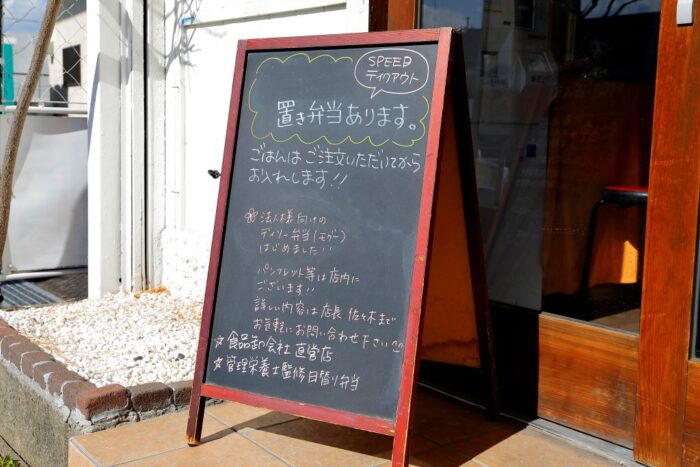 SPEED
テイクアウト
置き弁当あります。
ごはんは ご注文いただいてから
お入れします!!
法人様向けの
デイリー弁当(モグー)
はじめました!!
パンフレット等は店内に
ございます!!
詳しい内容は店長 佐々木まで
お気軽にお問い合わせ下さい^^
☆食品卸会社 直営店
☆管理栄養士監修日替り弁当